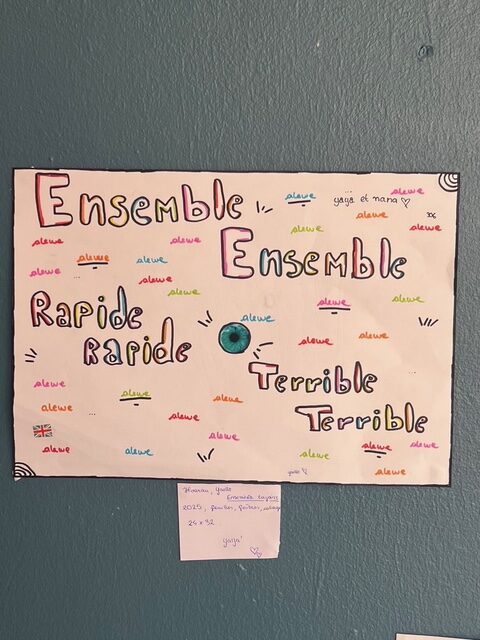 Ensemble
alewe
yaya et nana ♡
alewe
alewe
306
alewe
Ensemble
alewe
alewe
alewe
alewe
alewe
alewe
alewe
alewe
alewe
Rapide
alewe
alewe
alewe
Rapide
alewe
Terrible
alewe
alewe
alewe
Terrible
alewe
alewe
alewe
alewe
alewe
alewe
alewe
alewe
alewe
2025
24 x 32
yaya!